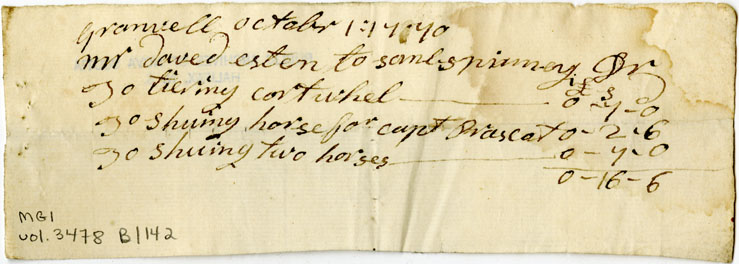 granvell october 1:17:90
mr daved esten to saml spinney Dr
£ s D
To tiering cort whel 0-7-0
To shuing horse for capt Prascot 0-2-6
To shuing two horses 0-7-0
0-16-6
MG1
vol. 3478 B/142